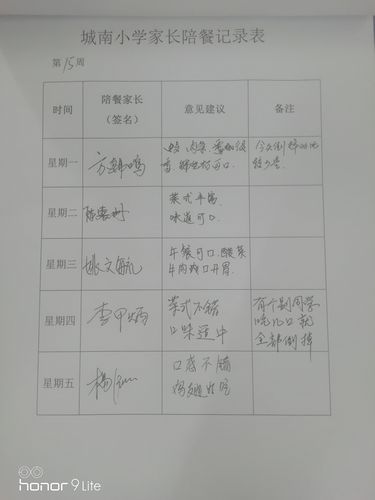 城南小学家长陪餐记录表
第15周
时间 陪餐家长（签名） 意见建议 备注
星期一
今天倒掉的比较少。
星期二
菜式丰富
味道可口
星期三 姚文
午餐可口.酸菜
牛肉爽口开胃.
星期四 李甲炳
菜式不错
口味适中
有个别同学
吃几口就
全部倒掉
星期五 杨
口感不错
鸡翅好吃
honor 9 Lite